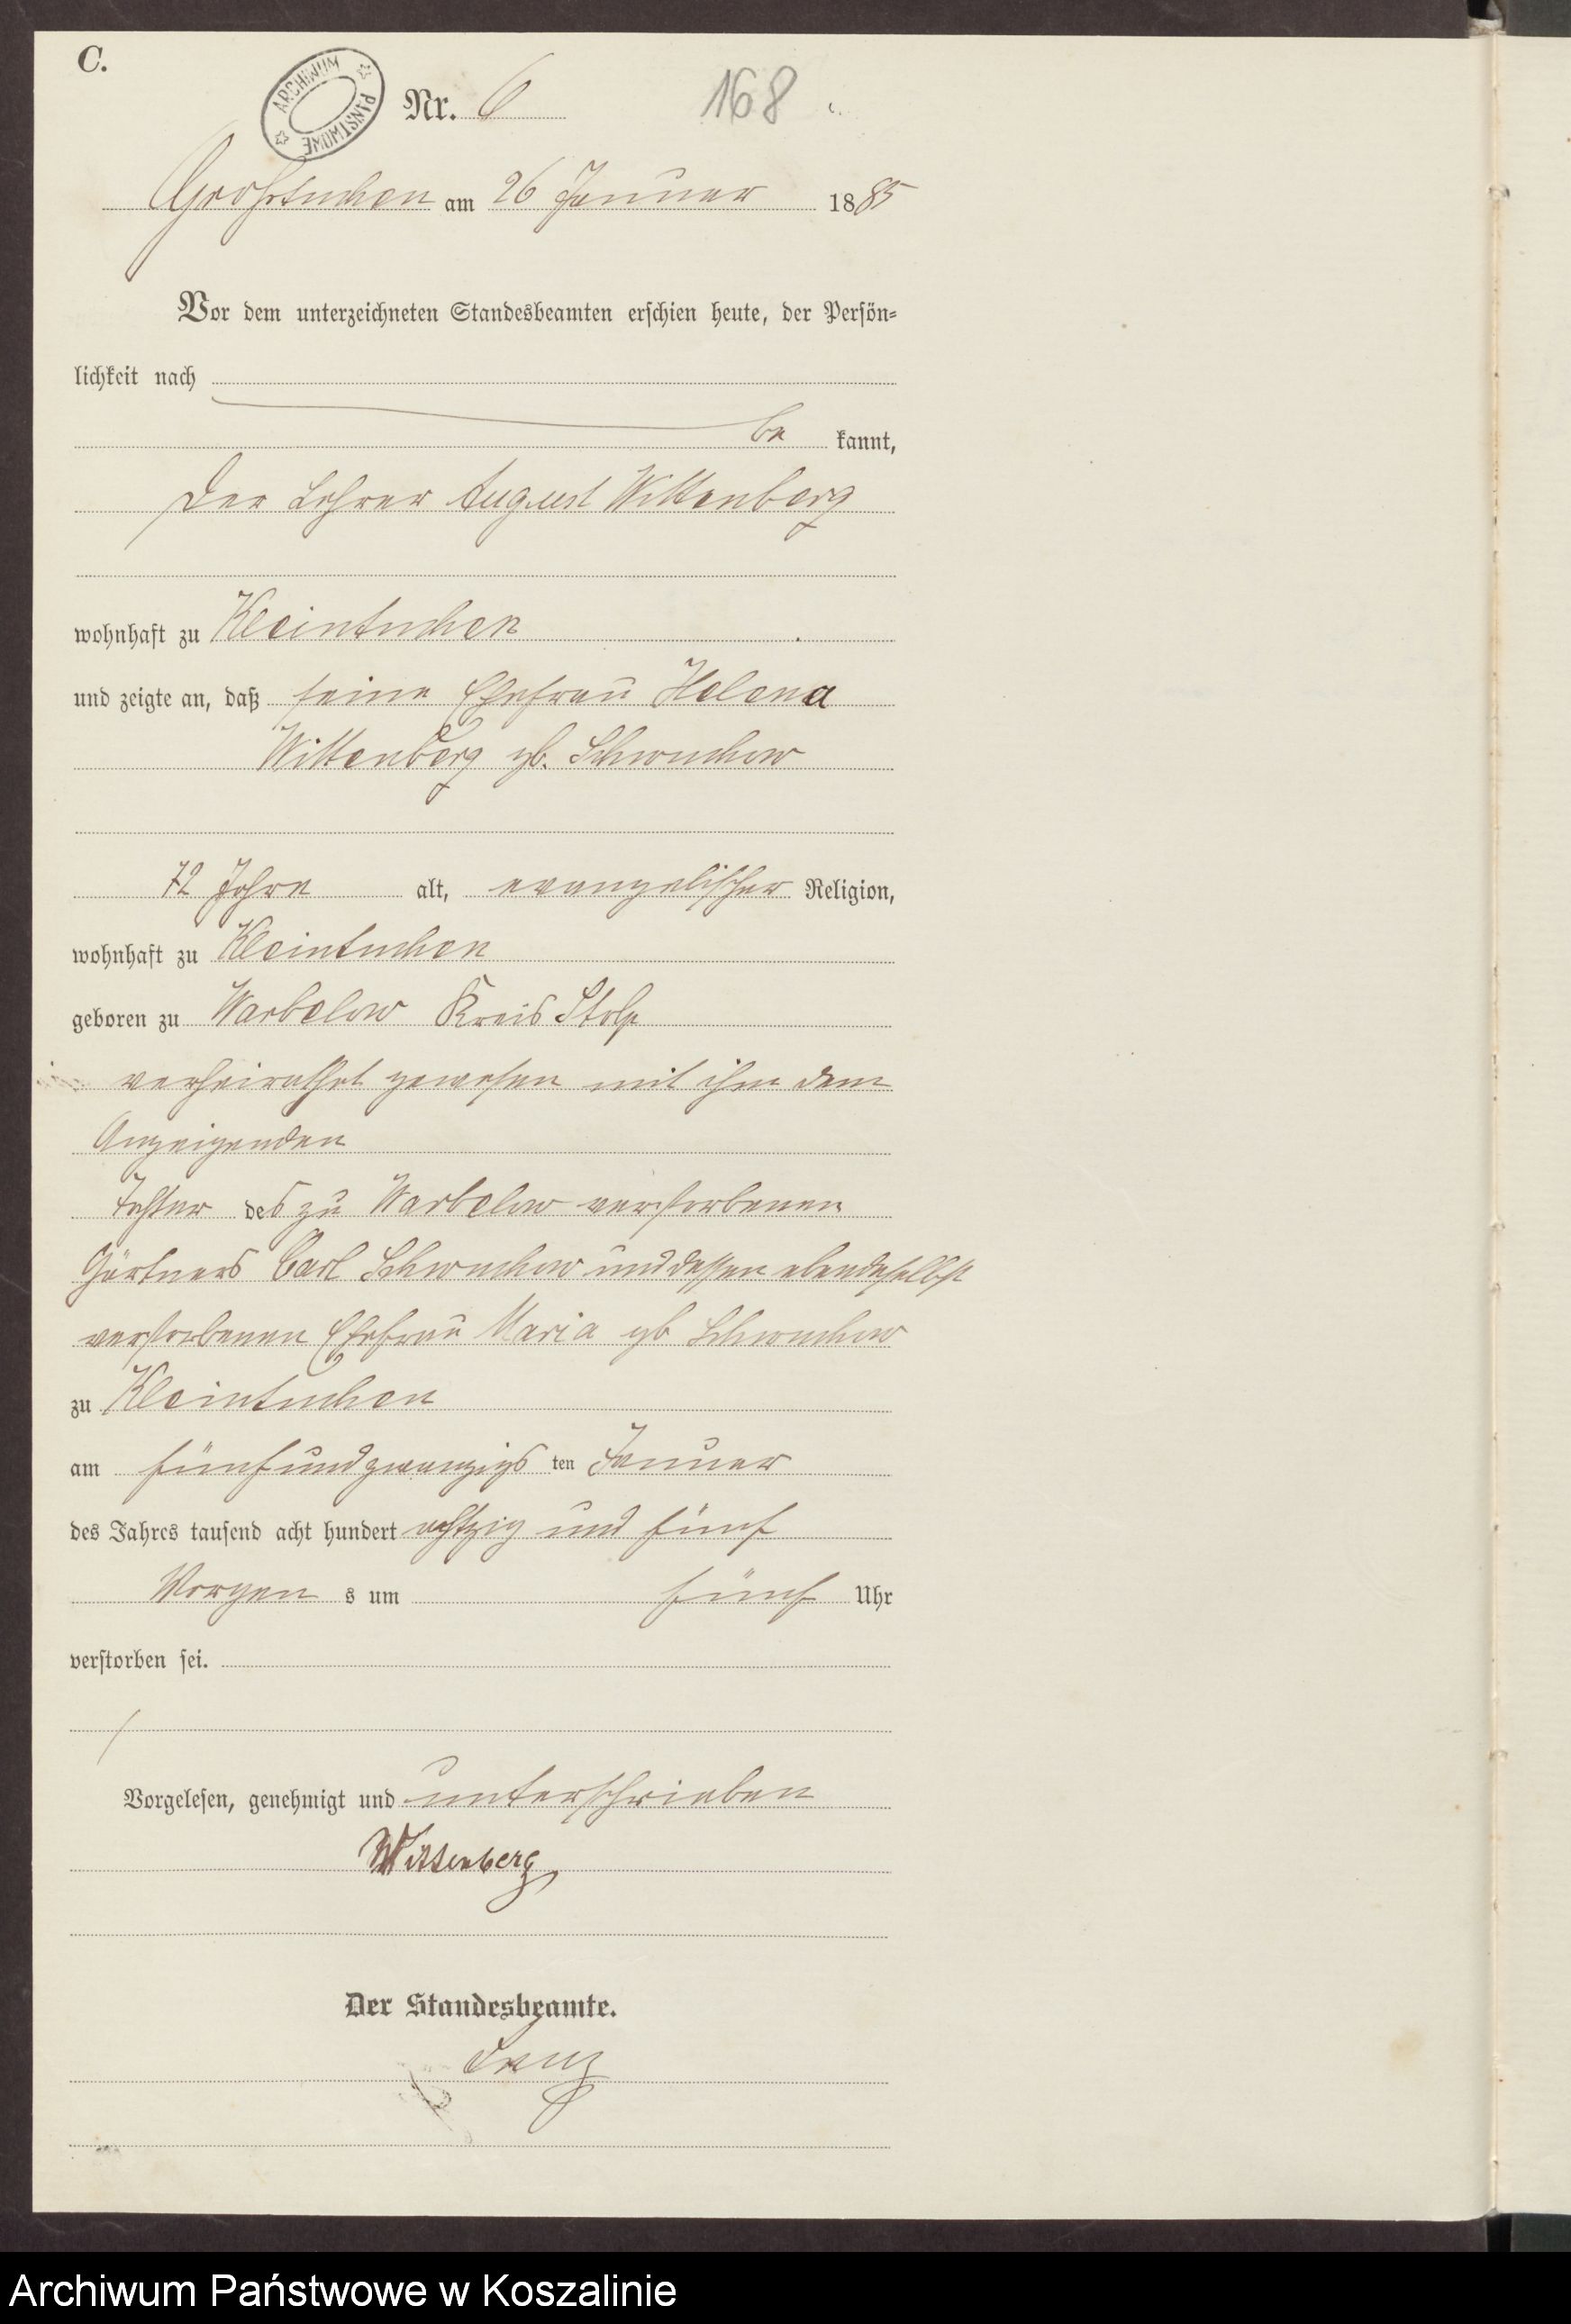 C.
ARCHIWUM PAŃSTWOWE
Nr. 6
168
Großtuchen am 26 Januar 1885
Vor dem unterzeichneten Standesbeamten erschien heute, der Persön-
lichkeit nach
be kannt,
der Lehrer August Wittenberg
wohnhaft zu Kleintuchen
und zeigte an, daß seine Ehefrau Helena
Wittenberg gb. Schwuchow
72 Jahre alt, evangelischer Religion,
wohnhaft zu Kleintuchen
geboren zu Warbelow Kreis Stolp
verheirathet gewesen mit ihm dem
Anzeigenden
Tochter des zu Warbelow verstorbenen
Gärtners Carl Schwuchow und dessen ebendaselbst
verstorbenen Ehefrau Maria gb Schwuchow
zu Kleintuchen
am fünfundzwanzigs ten Januar
des Jahres tausend acht hundert achtzig und fünf
Morgen s um fünf Uhr
verstorben sei.
Vorgelesen, genehmigt und unterschrieben
Wittenberg
Der Standesbeamte.
Archiwum Państwowe w Koszalinie